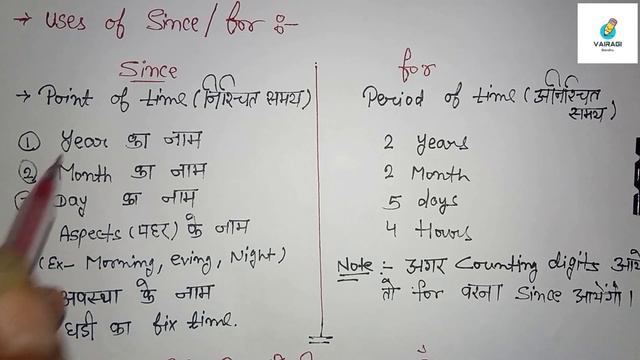 → Uses of Since/for :-
VAIRAGI
Since
for
→ Point of time (निश्चित समय)
Period of time (अनिश्चित समय)
① Year का नाम
2 Years
② Month का नाम
2 Month
Day का नाम
5 days
Aspects (पहर) के नाम
4 Hours
(Ex- Morning, eving, Night)
Note :- अगर Counting digits आये
अवस्था के नाम
तो for वरना Since आयेगा।
घडी का fix time.